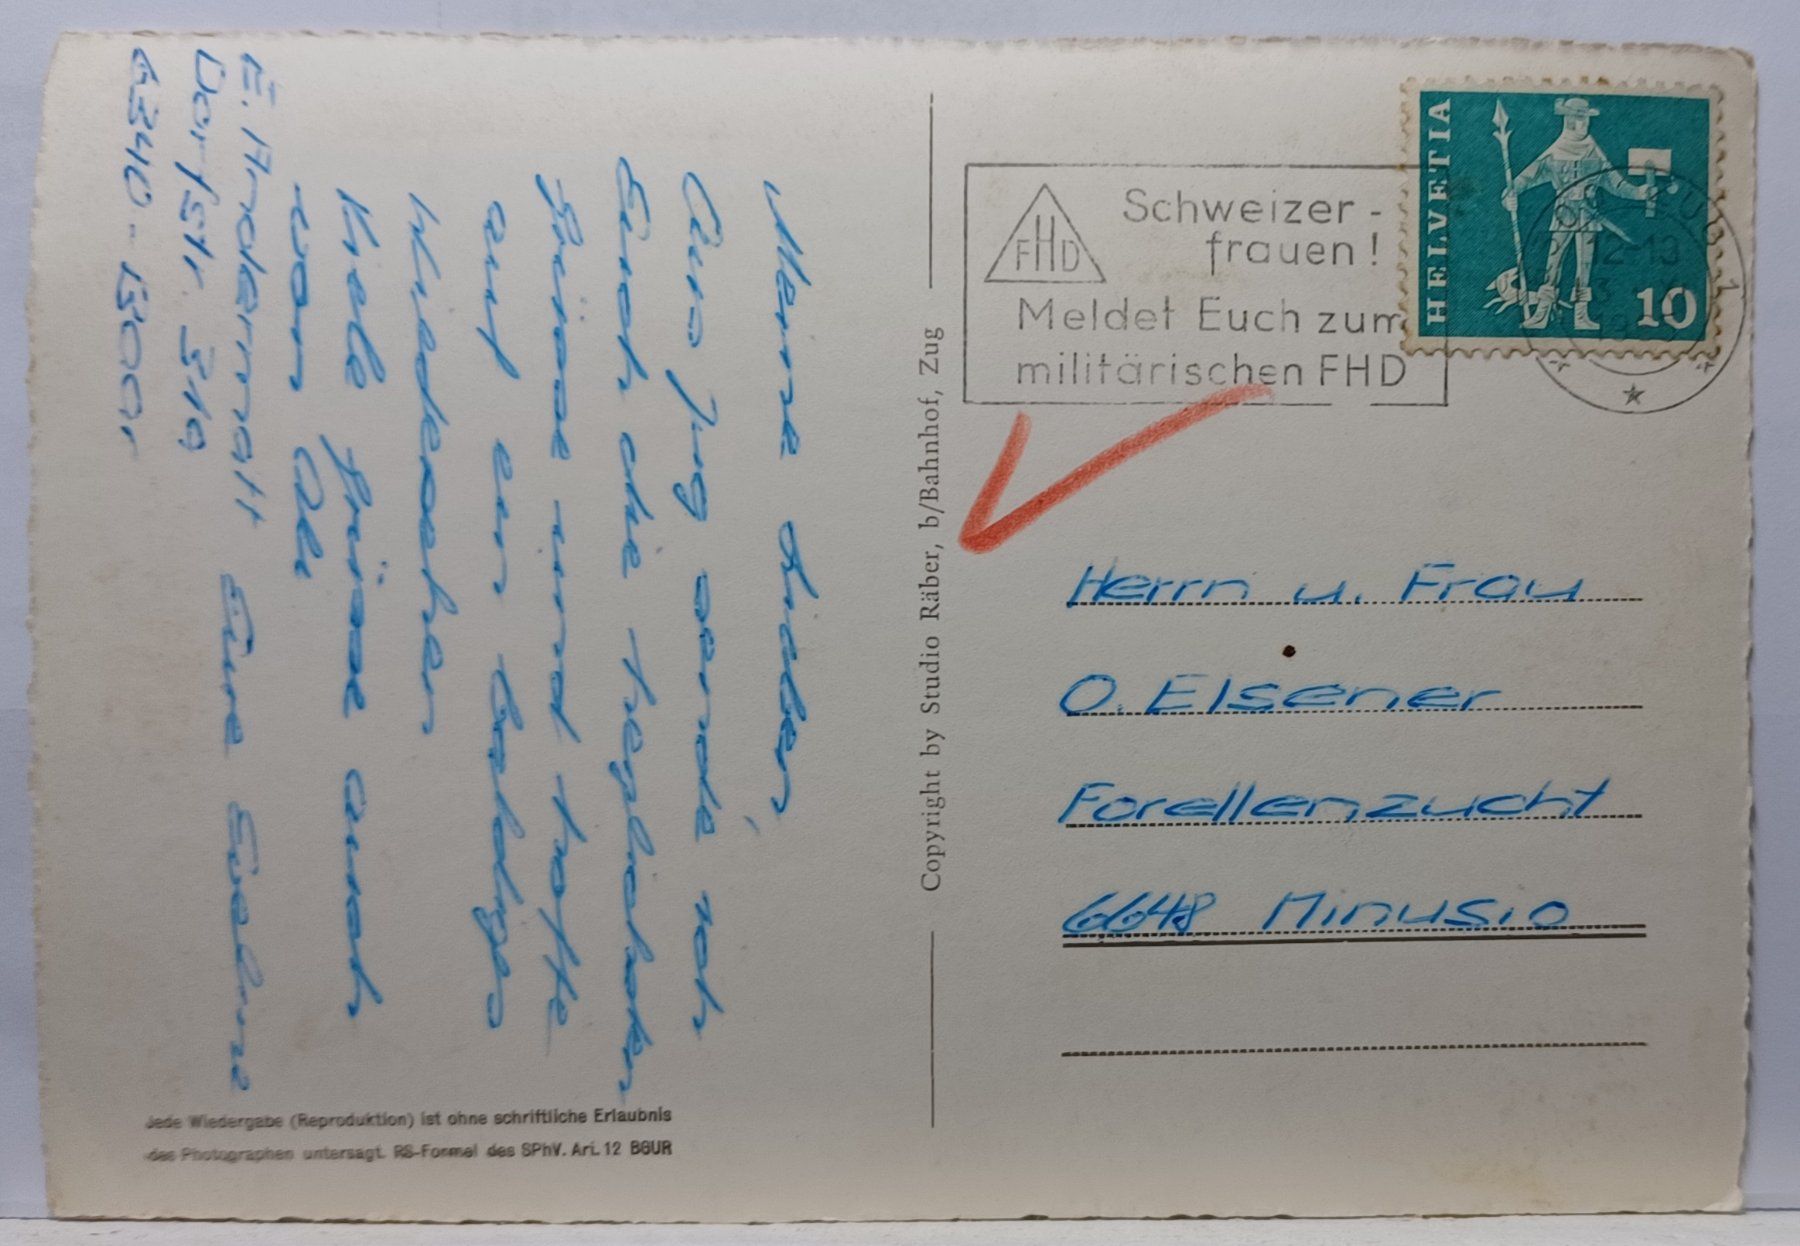 Meine Lieben,
Aus Zug sende ich
Euch die herzlichsten
Grüsse und hoffe
auf ein baldiges
Wiedersehen
Viele Grüsse auch
von
Eure Eveline
E. Andermatt
Dorfstr. 31a
6340 - Baar
Jede Wiedergabe (Reproduktion) ist ohne schriftliche Erlaubnis
des Photographen untersagt. RS-Formel des SPhV. Art. 12 BGUR
Copyright by Studio Räber, b/Bahnhof, Zug
FHD
Schweizer-
frauen!
Meldet Euch zum
militärischen FHD
HELVETIA
10
12-13
1
Herrn u. Frau
O. Elsener
Forellenzucht
6648 Minusio